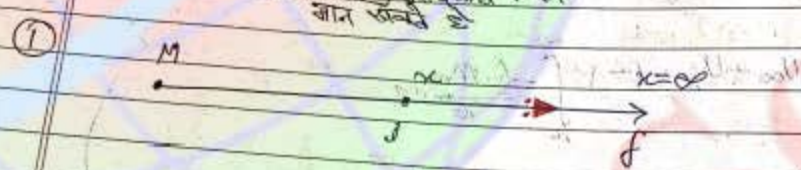 मान सकते है
①
M x x=∞
f